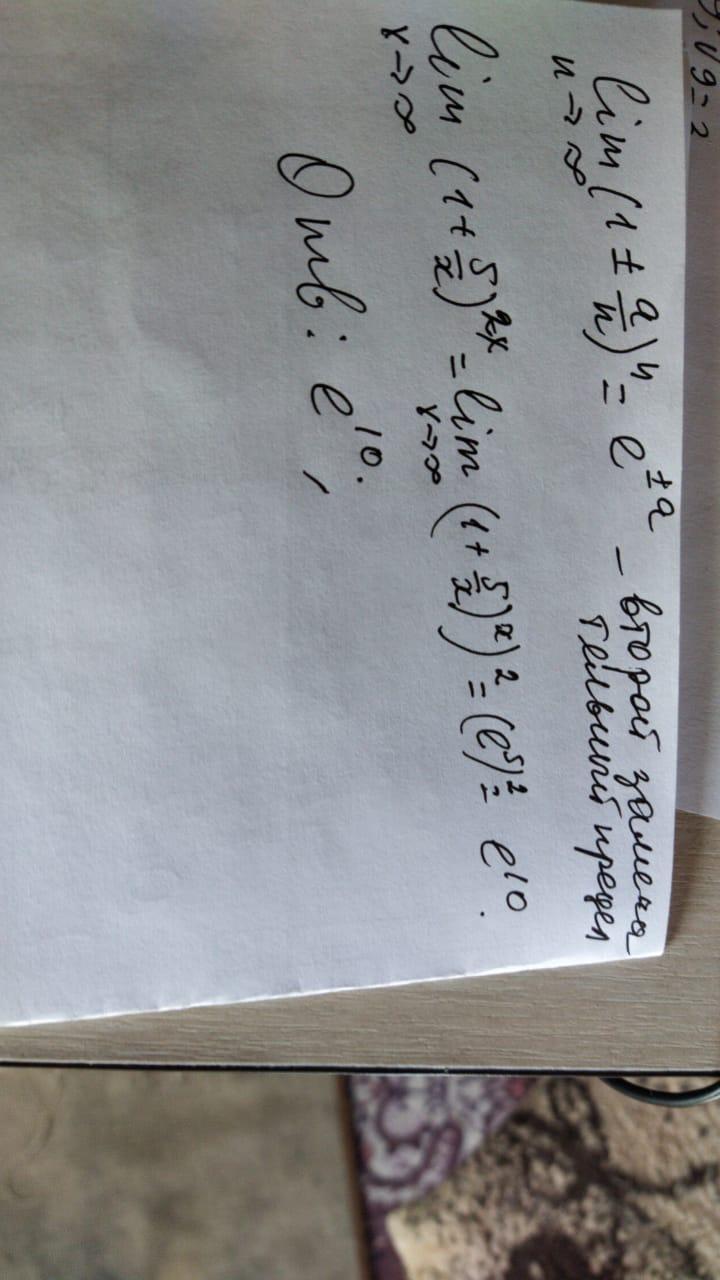 lim (1 ± a/n)^n = e^±a – второй замеча
n→∞ тельный предел
lim (1 + 5/x)^2x = lim (1 + 5/x)^x)^2 = (e^5)^2 = e^10.
x→∞ x→∞
Отв: e^10.,